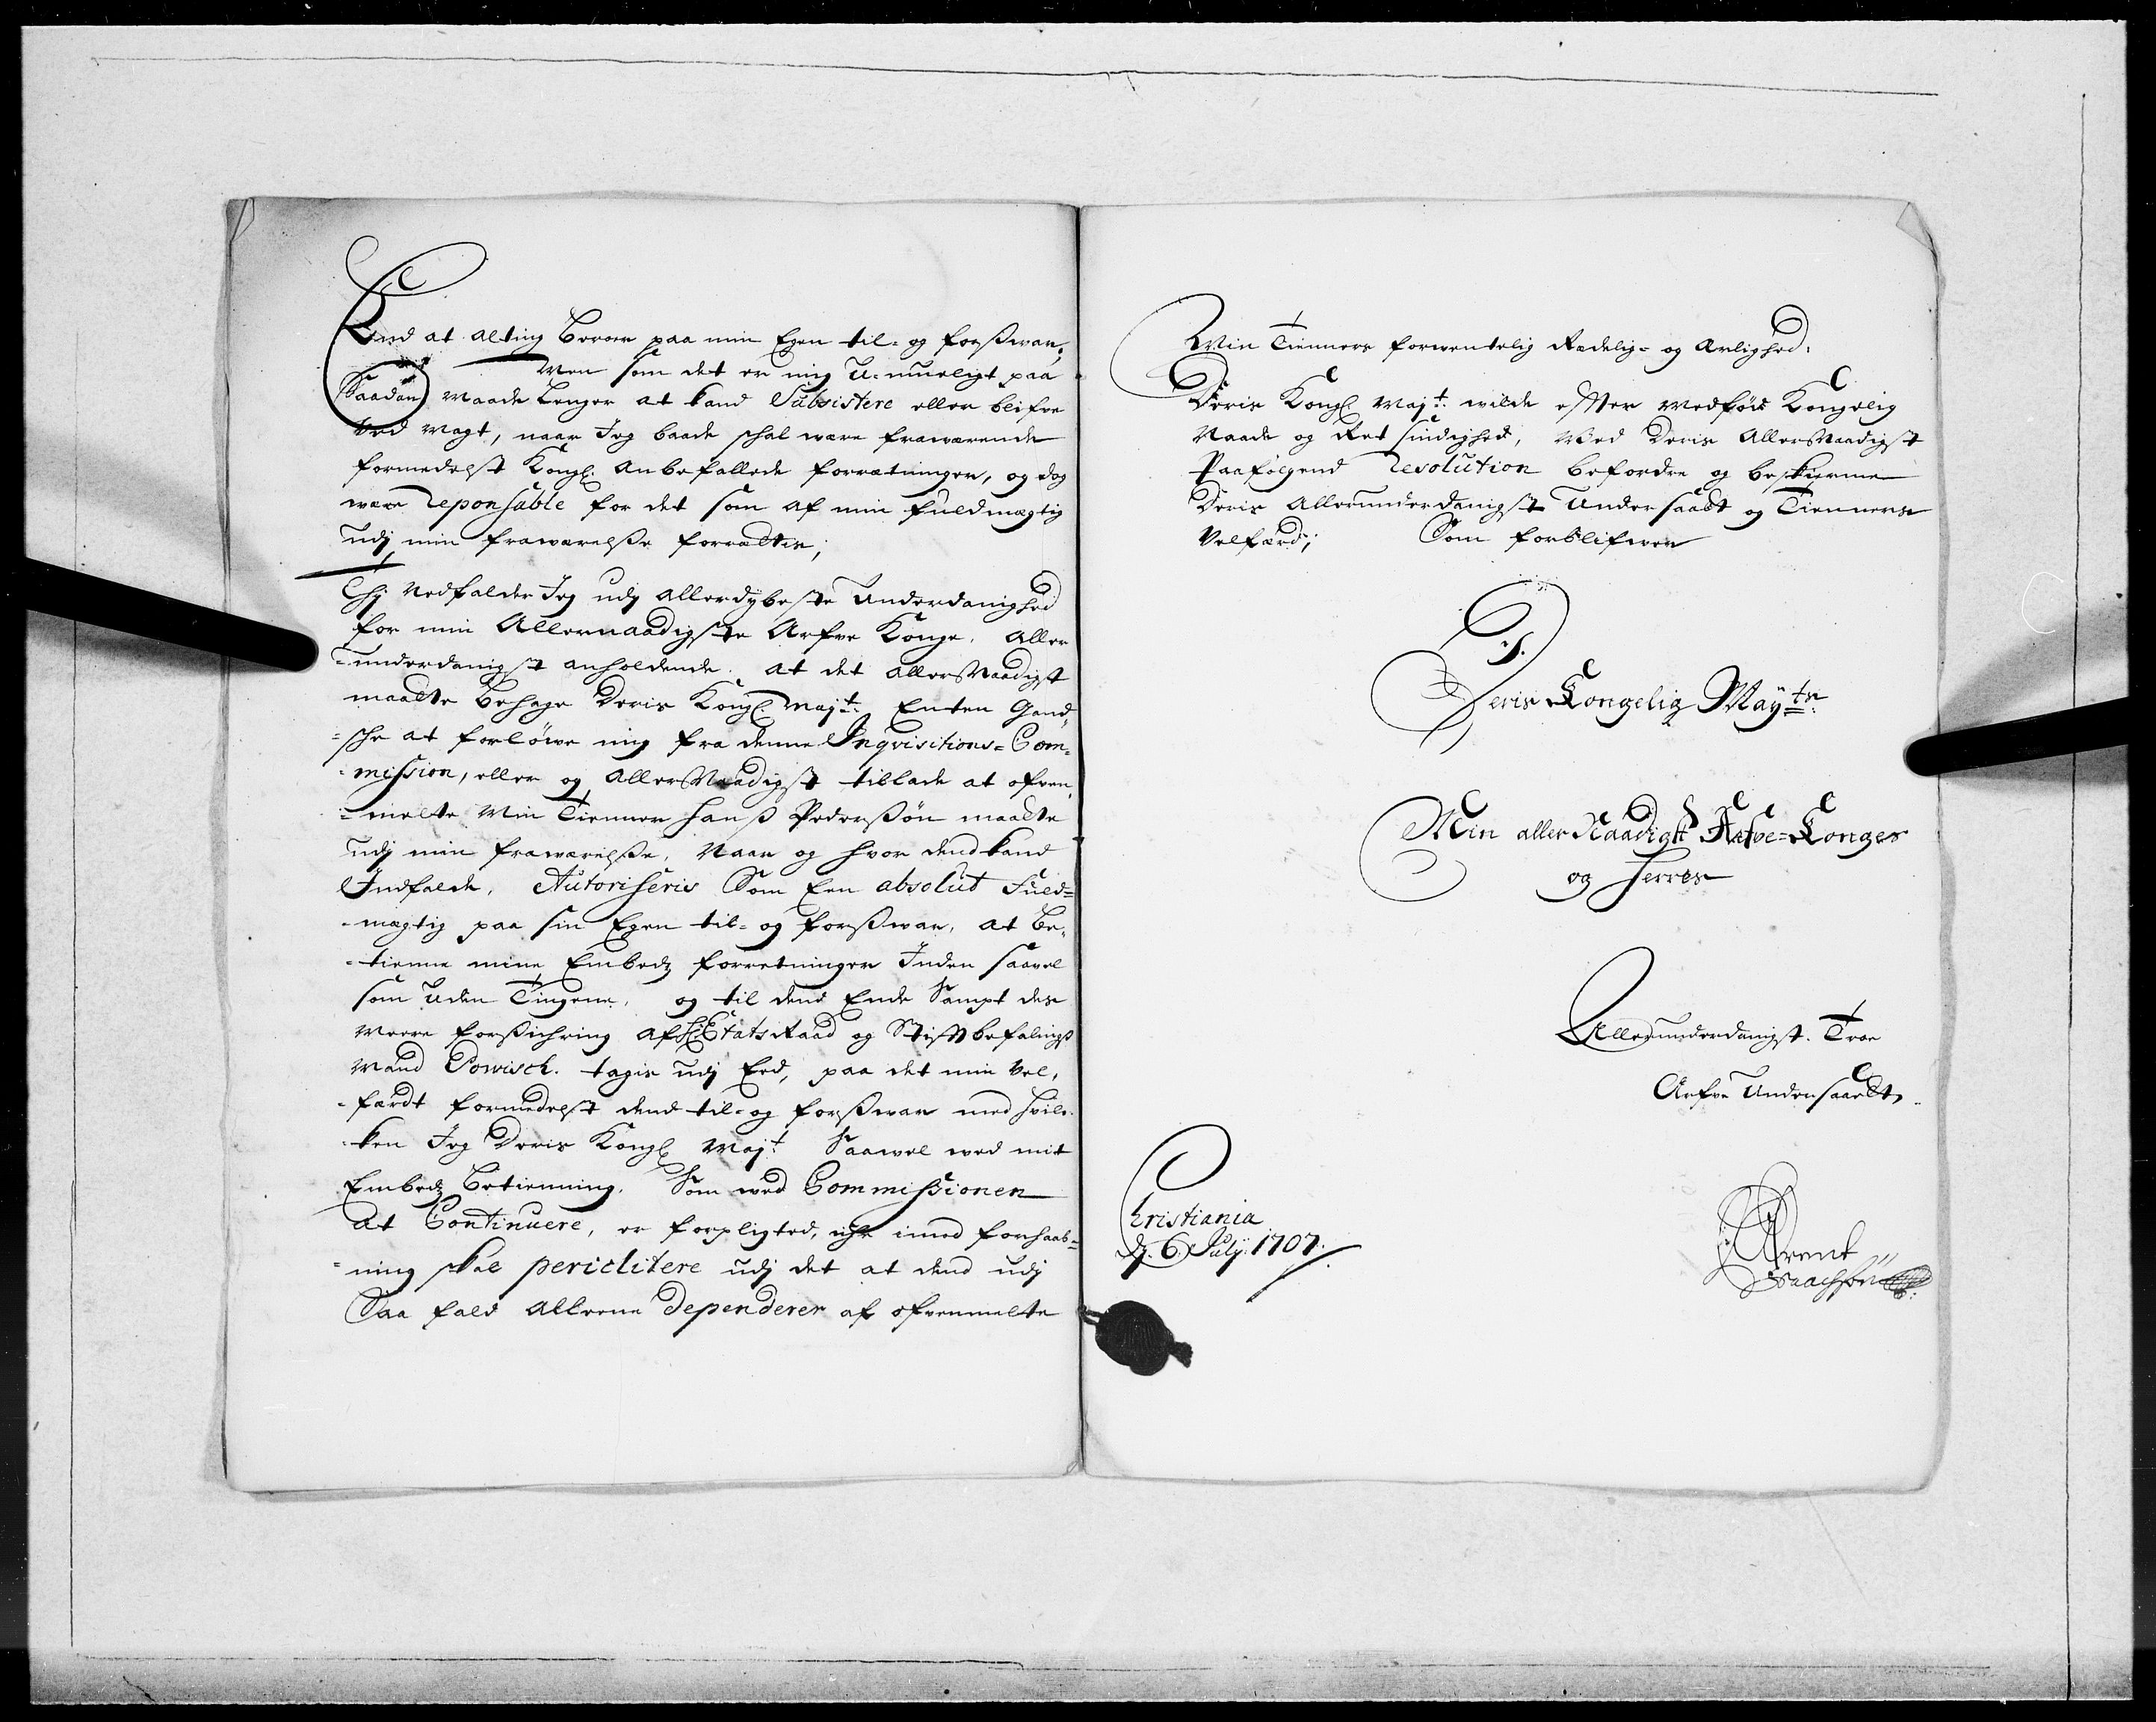 End at alting beroer paa min Egen til- og forswar,
Men som det er mig U-mueligt paa
Saadan maade lenger at kand Subsistere eller blifve
ved magt, naar Jeg baade schal være fraværende
formedelst Kongl: anbefallede forretninger, og dog
være reponsable for det som af min fuldmegtig
udj min fraværelsse forrættes;
Thj Nedfalder Jeg udj allerdybeste Underdanighed
for min Allernaadigste Arfve Konge, aller
=underdanigst anholdende, at det allerNaadigst
maatte behage Deris Kongl: Majt: Enten Gand,
=sche at forlöwe mig fra denne Inqvisitions=Com=
=mission, eller og allerNaadigst tillade at ofven,
=melte Min Tienner Hans Pedersøn maatte
udj min fraværelsse, Naar og hvor dend kand
Indfalde, Autoriseris Som Een absolut Fuld=
=mægtig paa sin Egen til- og forswar, at be,
=tienne mine Embedz forretninger Inden saavel
som Uden Tingene, og til dend Ende Sampt des
Meere forsichring af Hr: EtatsRaad og Stiftbefalings
Mand Powisch. tages udj Eed, paa det min vel,
=færdt formedelst dend til- og forswar med hvil-
ken Jeg Deris Kongl Majt Saawel wed mit
Embedz betienning, Som wed Commissionen
at Continuere, er forpligted, iche imod forhaab=
=ning skal periclitere udj det at dend udj
Saa fald alleene dependerer af ofvenmelte
Min Tienners forventelig Redelig- og Ærlighed:
Deris Kongl Majt: wilde effter medføds Kongelig
Naade og Retsindighed, Med Deris AllerNaadigst
Paafølgend resolution befordre og beskierme
Deris Allerunderdanigst Undersaadt og Tienners
Velfærd; Som forblifver
Deris Kongelig Maÿts:
Min aller Naadigst Arfve=Konges
og Herres
Allerunderdanigst. Troe
Arfve Undersaadt,
Christiania
d. 6 Julÿ: 1707.
Arent
Isaachsen